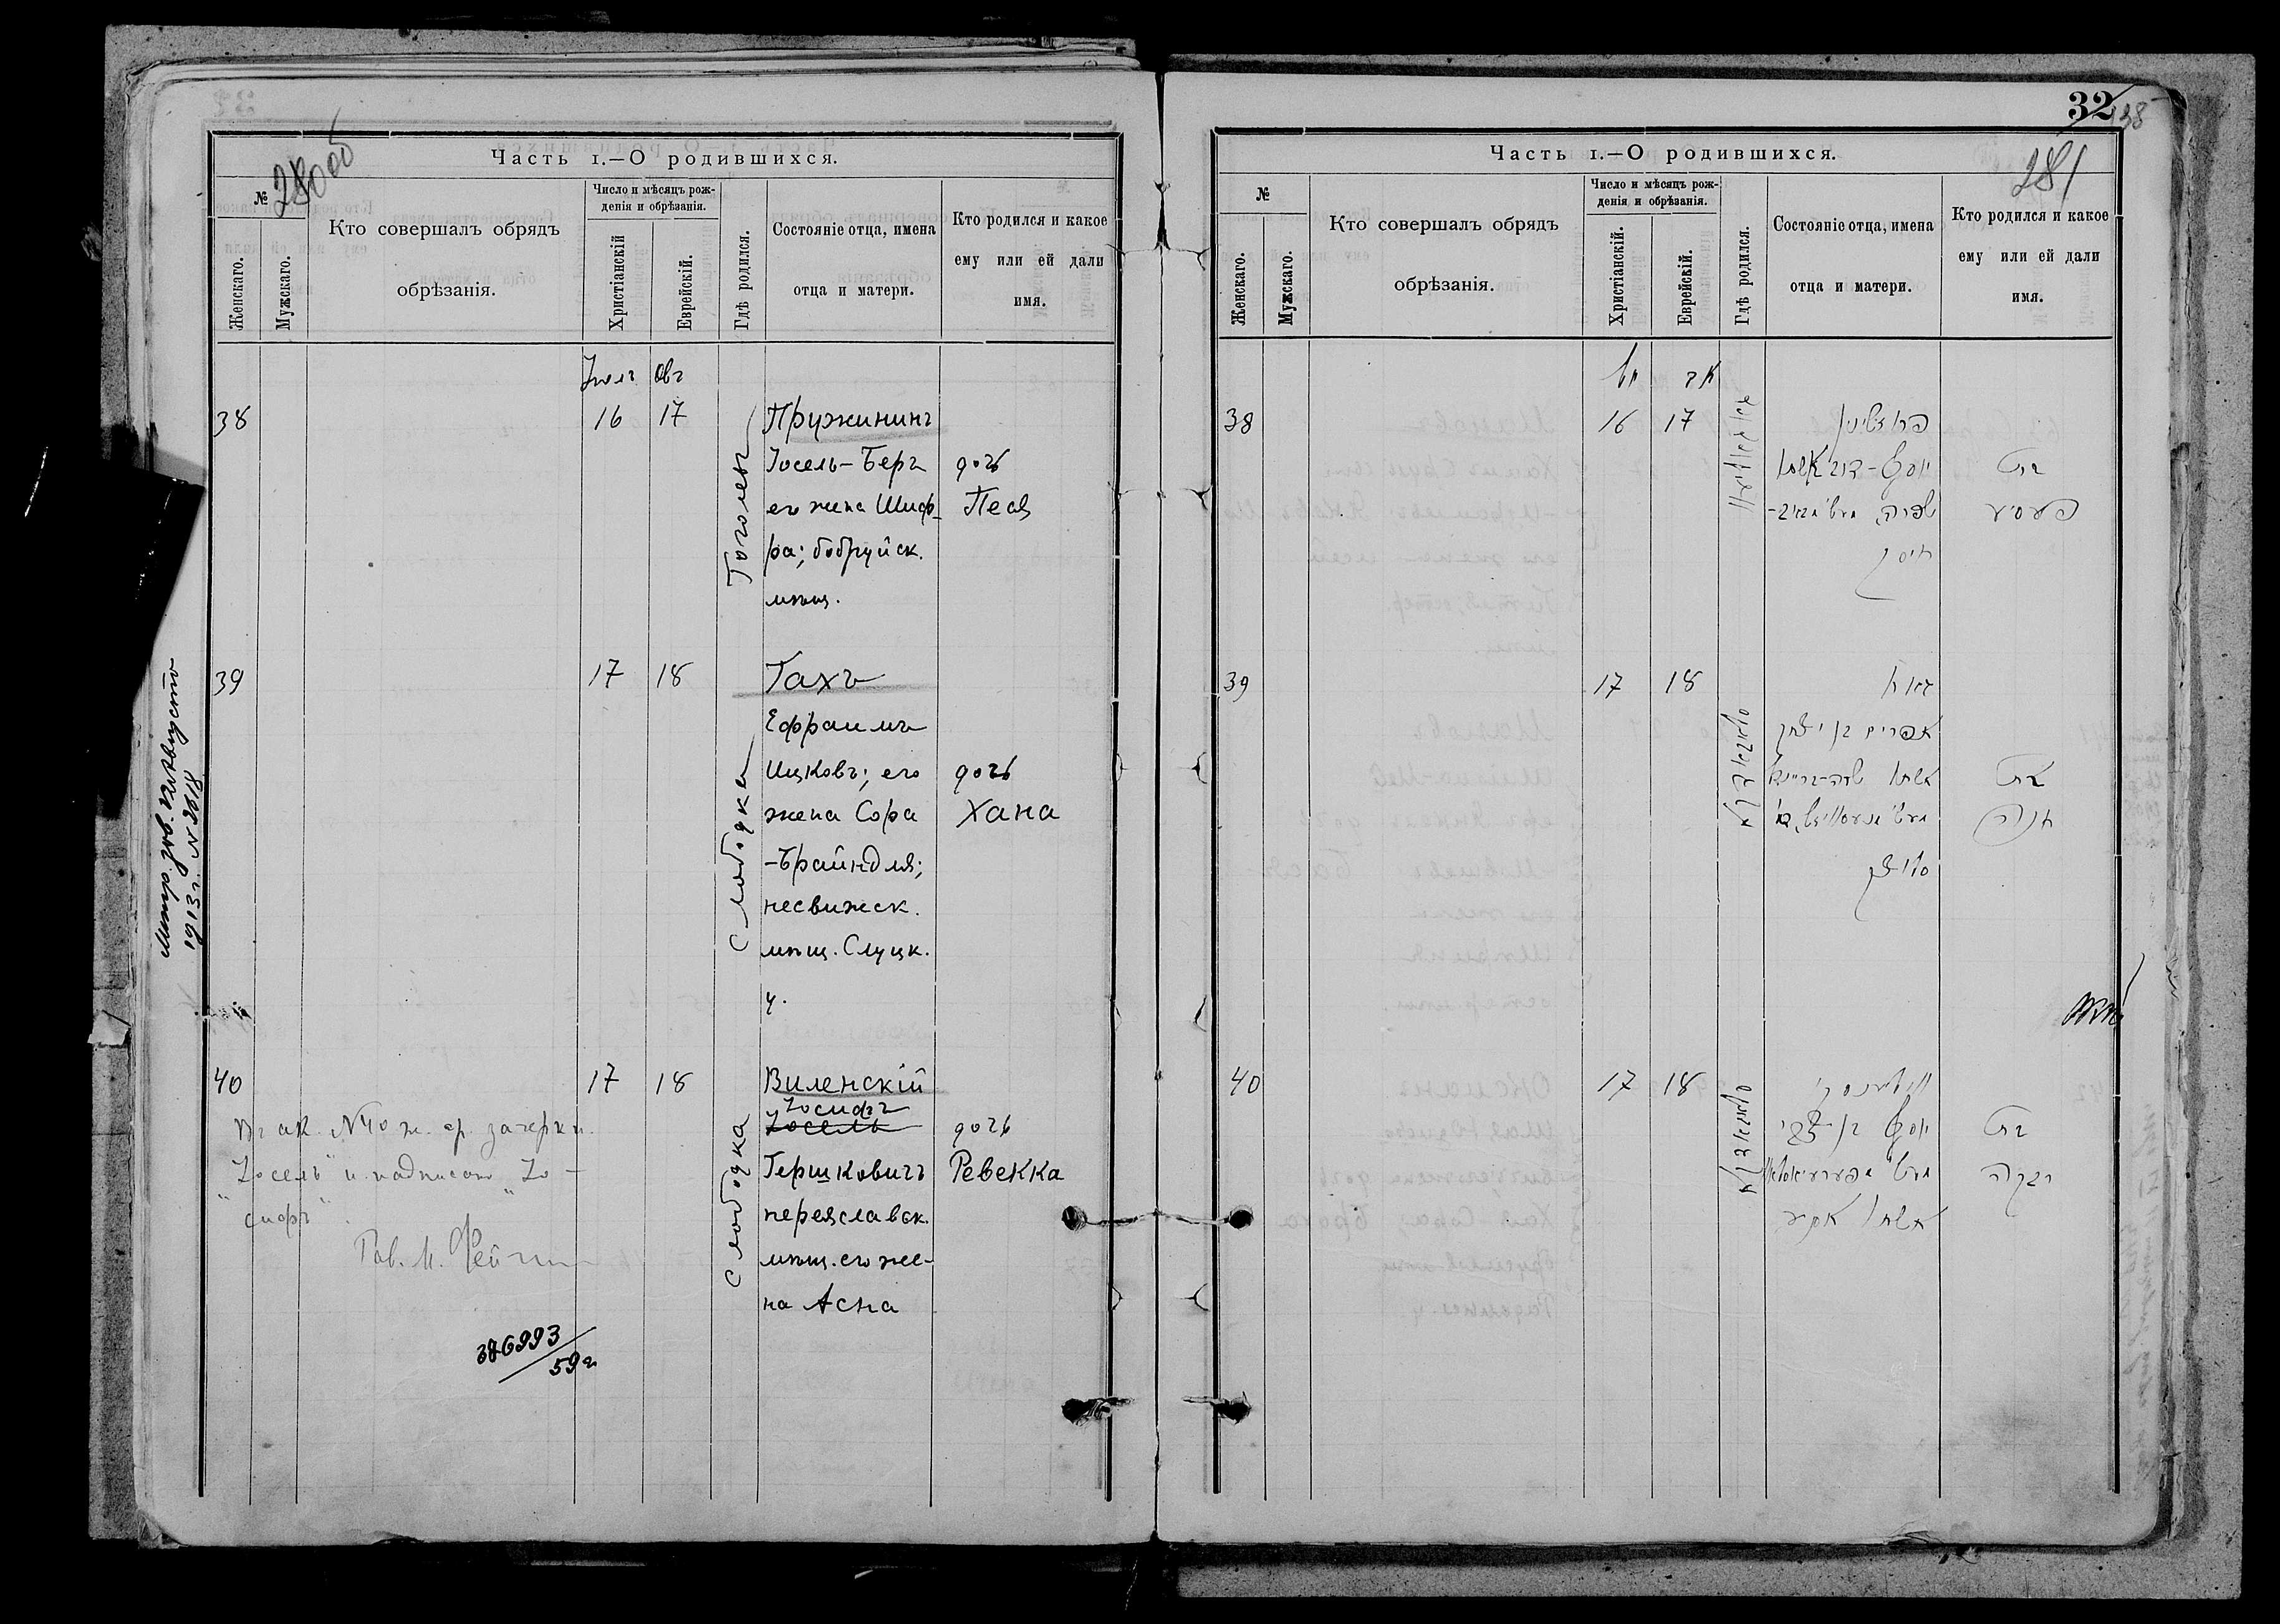 280об
Часть I.—О родившихся.
№
Женскаго.
Мужскаго.
Кто совершалъ обрядъ
обрѣзанія.
Число и мѣсяцъ рож-
денія и обрѣзанія.
Христіанскій
Еврейскій.
Гдѣ родился.
Состояніе отца, имена
отца и матери.
Кто родился и какое
ему или ей дали
имя.
Іюль Овъ
38
16 17
Гоголевъ
Пружининъ
Іосель-Беръ
его жена Шиф-
ра; бобруйск.
мѣщ.
дочь
Песя
39
17 18
Слободка
Гахъ
Ефраимъ
Ицковъ; его
жена Сора
-Брайндля;
несвижск.
мѣщ. Слуцк.
у.
дочь
Хана
40
17 18
Слободка
Виленскій
Іосифъ
Іосель
Гершковичъ
переяславск.
мѣщ. его же-
на Асна
дочь
Ревекка
Въ ак. №40 ж. гр. зачеркн.
"Іосель" и надписано "Іо-
сифъ".
Рав. М.
386993
59 г.
1913 г. № 2918
32
281
Часть I.—О родившихся.
№
Женскаго.
Мужскаго.
Кто совершалъ обрядъ
обрѣзанія.
Число и мѣсяцъ рож-
денія и обрѣзанія.
Христіанскій.
Еврейскій.
Гдѣ родился.
Состояніе отца, имена
отца и матери.
Кто родился и какое
ему или ей дали
имя.
אב
38
16 17
יוסף-דוב אשתו
שפרה,
בת
פעסיע
39
17 18
סלאבאדקא
אפרים בן יצחק
אשתו שרה-בריינא
בת
חנה
40
17 18
סלאבאדקא
ווילענסקי
יוסף בן צבי
אשתו אסנע
בת
רבקה